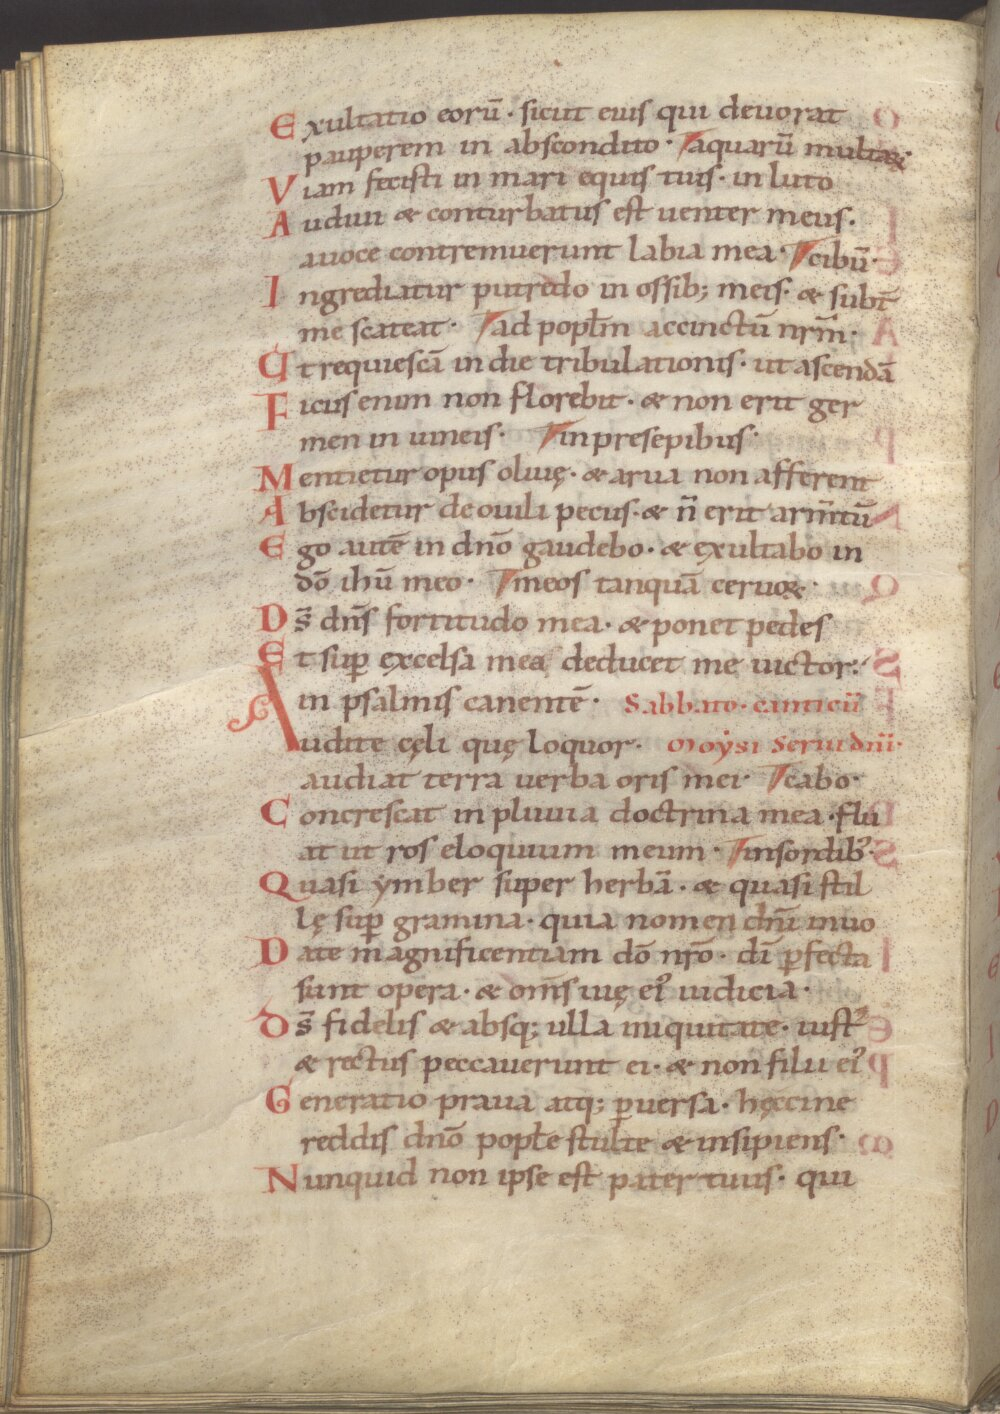 Exultatio eorū · sicut eius qui deuorat
pauperem in abscondito · aquarū multaꝝ·
Viam fecisti in mari equis tuis · in luto
Audiui & conturbatus est uenter meus ·
auoce contremuerunt labia mea · cibū ·
Ingrediatur putredo in ossib; meis · & subt̄
me scateat · ad popłm accinctū nr̄m ·
Ut requiescā in die tribulationis · ut ascendā
Ficus enim non florebit · & non erit ger
men in uineis · in presepibus ·
Mentietur opus oliuę · & arua non afferent
Abscidetur de ouili pecus · & n̄ erit arm̄tū
Ego autē in dn̄o gaudebo · & exultabo in
dō ihū meo · meos tanquā ceruoꝝ ·
Ds̄ dn̄s fortitudo mea · & ponet pedes
Et suꝑ excelsa mea deducet me uictor ·
in psalmis canentē · Sabbato · canticū
Audite cęli quę loquor · Moysi serui dn̄i ·
audiat terra uerba oris mei · cabo ·
Concrescat in pluuia doctrina mea · flu
at ut ros eloquium meum · insordib; ·
Quasi ymber super herbā · & quasi stil
lę suꝑ gramina · quia nomen dn̄i inuo
Date magnificentiam dō nr̄o · dī ꝑfecta
sunt opera · & om̄s uię ei᾽ iudicia ·
Ds̄ fidelis & absq; ulla iniquitate · iust᾽
& rectus peccauerunt ei · & non filii ei᾽
Generatio praua atq; ꝑuersa · hęccine
reddis dn̄o popłe stulte & insipiens ·
Nunquid non ipse est pater tuus · qui